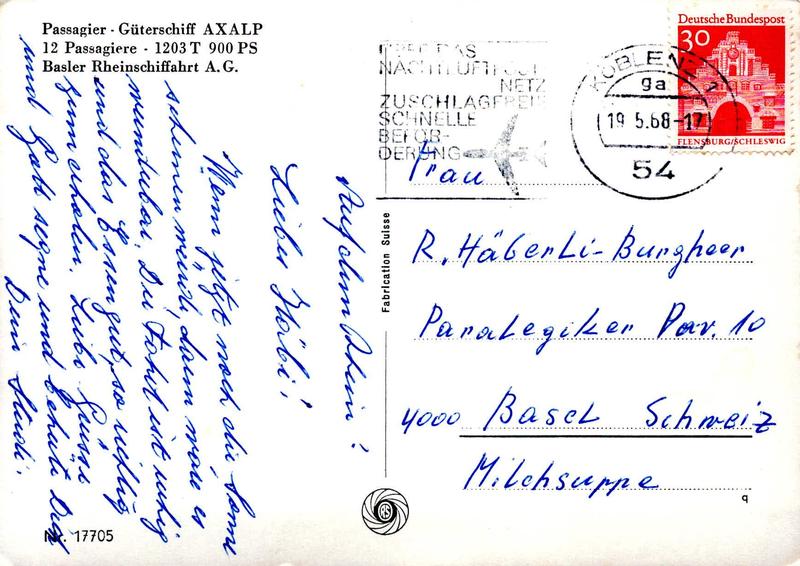 Passagier - Güterschiff AXALP
12 Passagiere - 1203 T 900 PS
Basler Rheinschiffahrt A. G.
Auf dem Rhein!
Lieber Häbi!
Wenn jetzt noch die Sonne
scheinen würde, dann wäre es
wunderbar. Die Fahrt ist ruhig
und das Essen gut, so richtig
zum erholen. Liebe Grüsse
und Gott segne und behüte Dich
Dein Studi.
Nr. 17705
Fabrication Suisse
ÜBER DAS
NACHTLUFTPOST
NETZ
ZUSCHLAGFREIE
SCHNELLE
BEFÖR-
DERUNG
KOBLENZ 1
ga
19.5.68-17
54
Deutsche Bundespost
30
FLENSBURG/SCHLESWIG
Frau
R. Häberli-Burgherr
Paralegiker Pav. 10
4000 Basel Schweiz
Milchsuppe
q